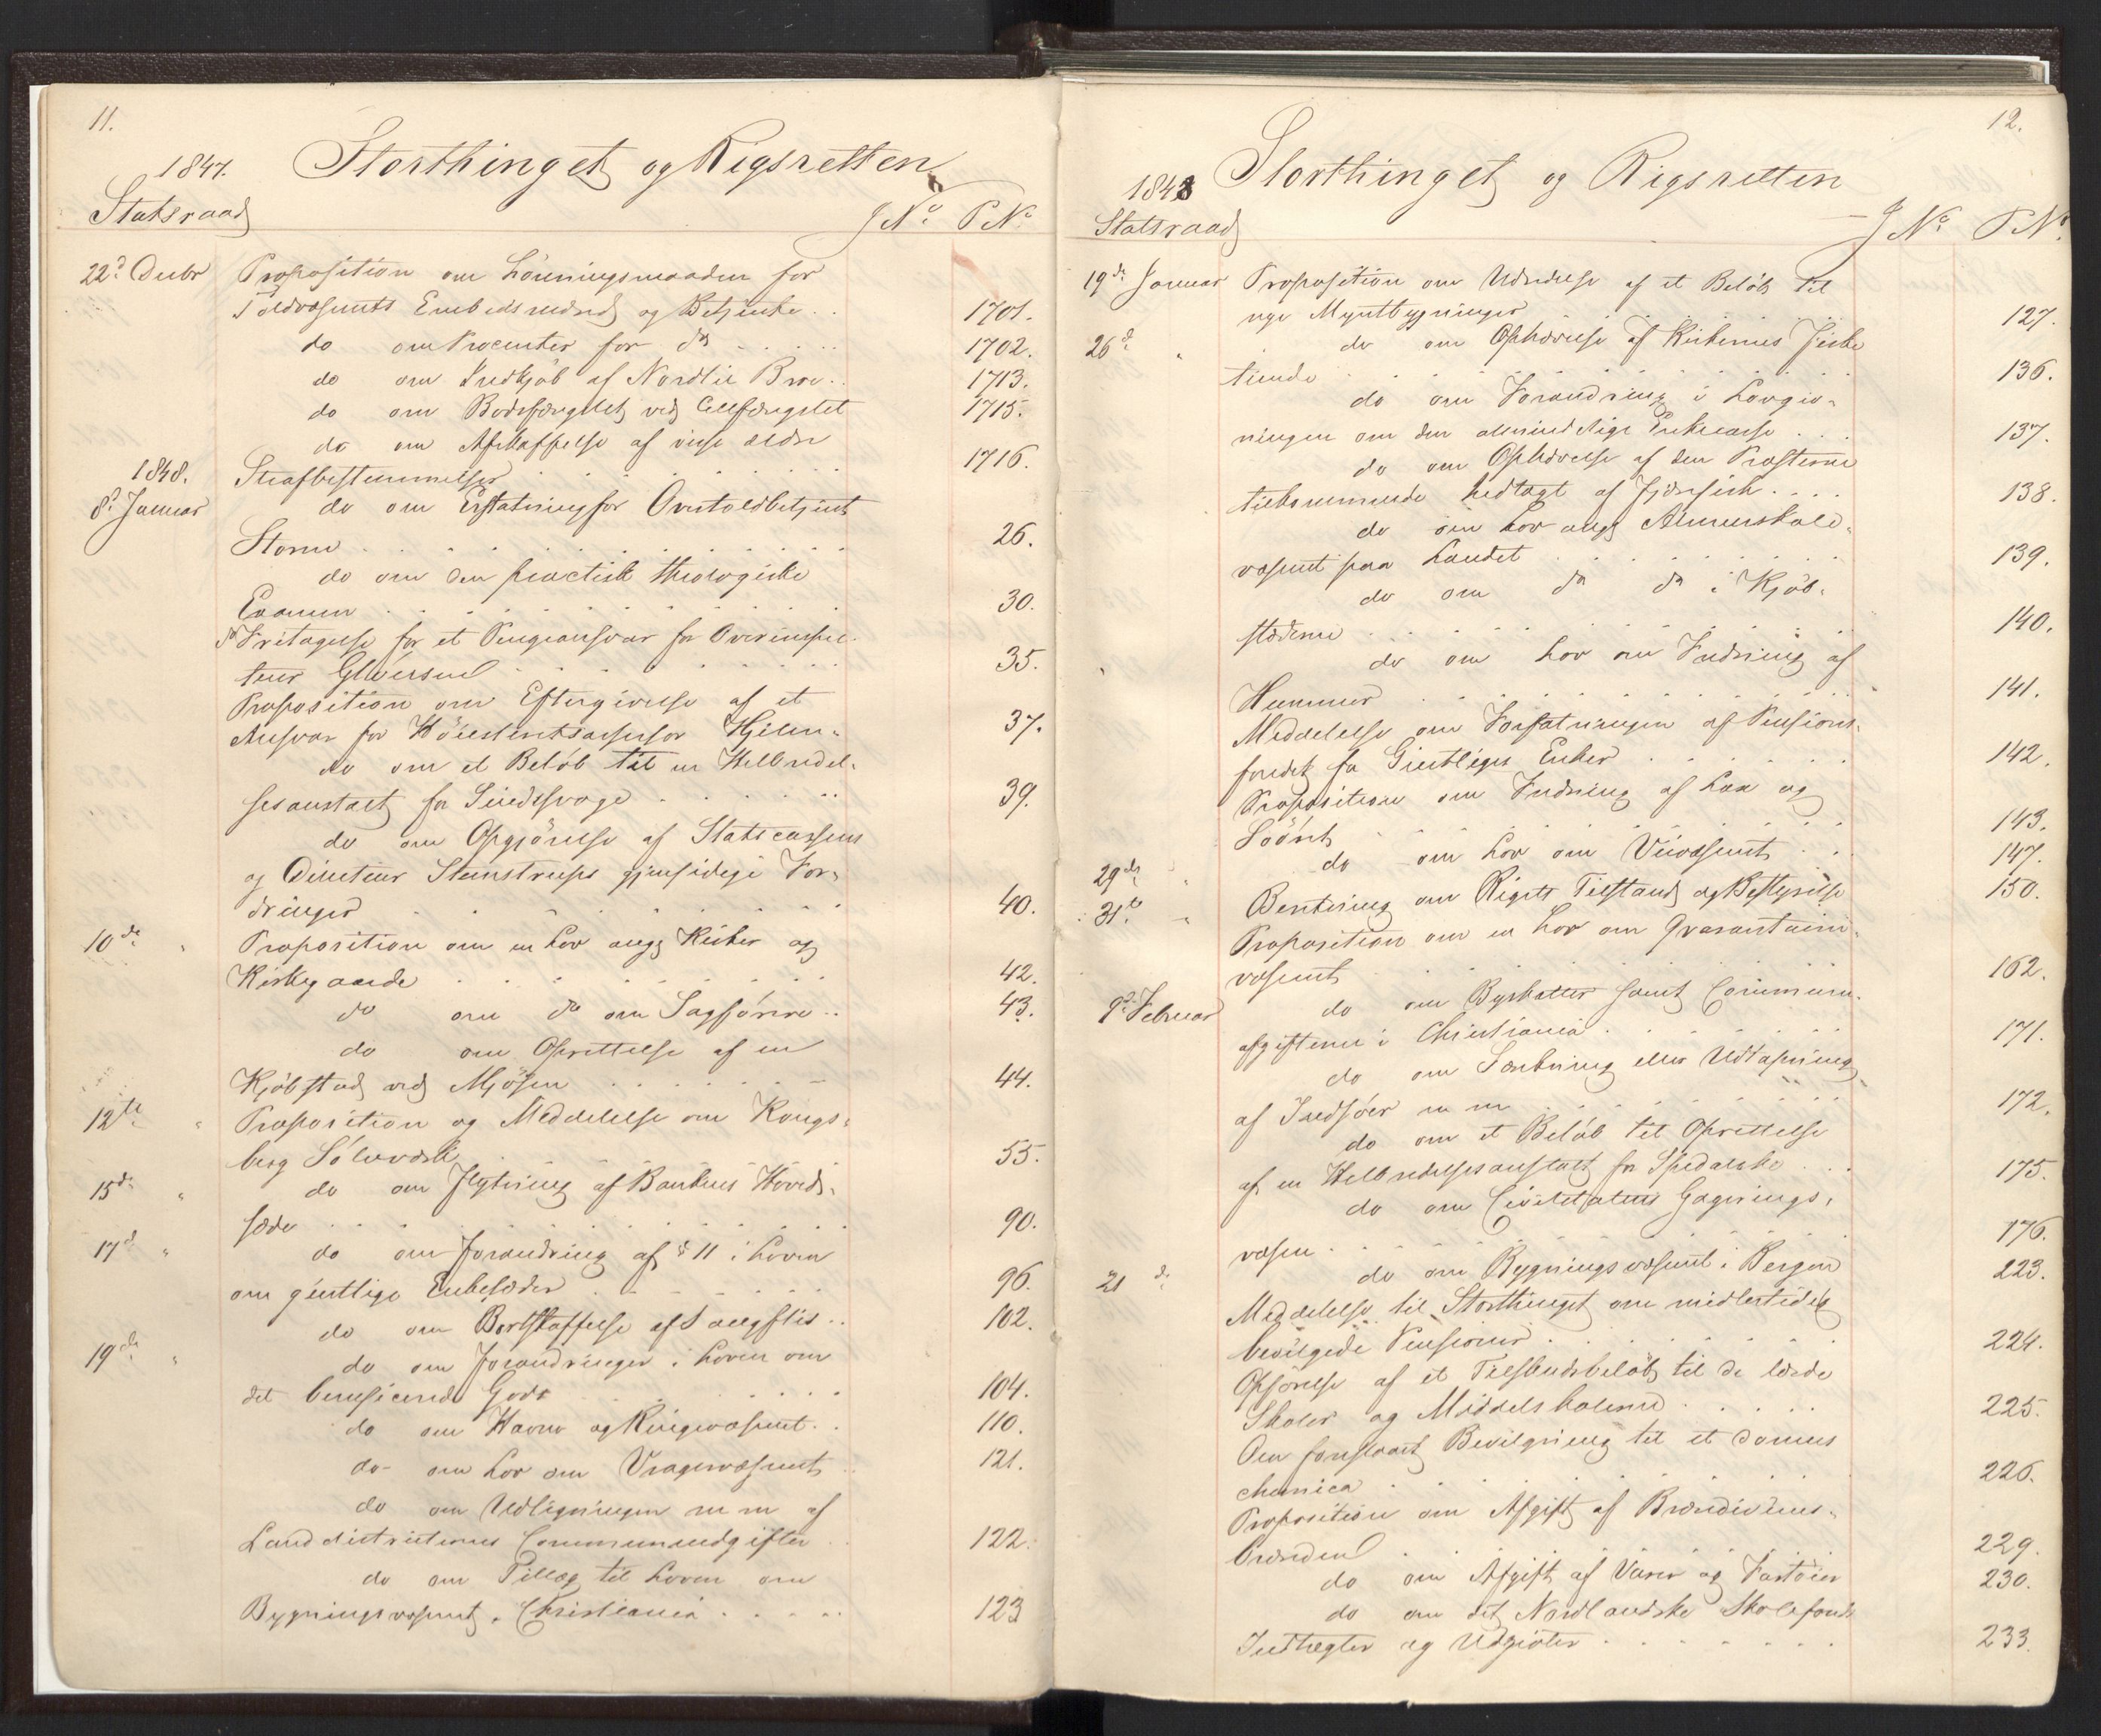 11.
1847. Storthinget og Rigsretten
Statsraad J No P No
22d Decbr Proposition om Lönningsmaaden for
Toldvæsenets Embedsmænd og Betjente . . 1701.
do om Procenter for do . . . . . 1702.
do om Indkjöb af Nordlie Brve. . 1713.
do om Bodsfængslet ved Cellfængslet 1715.
do om Afskaffelse af visse ældre
1848. Strafbestemmelser . . . . . 1716.
8d Januar do om Erstatning for Overtoldbetjent
Storm . . . . . 26.
do om den practisk theologiske
Examen . . . . . 30.
do Fritagelse for et Pengeansvar for Overinspec-
teur Glöersen . . . . . 35.
Proposition om Eftergivelse af et
Ansvar for Höiesteretsassessor Hjelm- 37.
do om et Belöb til en Helbredel-
sesanstalt for Sindssvage . . . . . 39.
do om Opgjörelse af Statscassens
og Directeur Steenstrups gjensidige For-
dringer . . . . . 40.
10de " Proposition om en Lov angd Kirker og
Kirkegaarde . . . . . 42.
do om do om Sagförere . . 43.
do om Oprettelse af en
Kjöbstad ved Mjösen . . . . . 44.
12te " Proposition og Meddelelse om Kongs-
berg Sölvværk . . . . . 55.
15de " do om Flytning af Bankens Hoved-
sæde . . . . . 90.
17de " do om Forandring af § 11 i Loven
om geistlige Enkesæder . . . . . 96.
do om Bortskaffelse af Saugflis . . 102.
19de " do om Forandringer i Loven om
det beneficerede Gods . . . . . 104.
do om Havne og Ringevæsenet . . 110.
do om Lov om Vragervæsenet . . 121.
do om Udligningen m m af
Landdistricternes Communeudgifter . . 122.
do om Tillæg til Loven om
Bygningsvæsenet i Christiania . . . . . 123
12.
1848 Storthinget og Rigsretten
Statsraad J No P No.
19de Januar Proposition om Udredelse af et Belöb til
nye Myntbygninger . . . . . 127.
26de " do om Ophævelse af Kirkernes Fiske
tiende . . . . . 136.
do om Forandring i Lovgiv-
ningen om den almindelige Enkecasse . . . 137.
do om Ophævelse af den Præsterne
tilkommende Indtægt af Fjærfisk . . . . 138.
do om Lov angd Almueskole-
væsenet paa Landet . . . . . 139.
do om do do i Kjöb-
stæderne . . . . . 140.
do om Lov om Fredning af
Hummer . . . . . 141.
Meddelelse om Forfatningen af Pensions-
fondet for Geistliges Enker . . . . . 142.
Proposition om Fredning af Lax og
Söörret . . . . . 143.
29de " do om Lov om Veivæsenet . . 147.
31te " Beretning om Rigets Tilstand og Bestyrelse 150.
Proposition om en Lov om Qvarantaine-
væsenet . . . . . 162.
9de Februar do om Byskatter samt Commune-
afgifterne i Christiania . . . . . 171.
do om Sænkning eller Udtapning
af Indsöer m m . . . . . 172.
do om et Belöb til Oprettelse
af en Helbredelsesanstalt for Spedalske . . . 175.
do om Civiletatens Gagerings-
væsen . . . . . 176.
21de do om Bygningsvæsenet i Bergen 223.
Meddelelse til Storthinget om midlertidig
bevilgede Pensioner . . . . . 224.
Opförelse af et Tilskudsbelöb til de lærde
Skoler og Middelskolerne . . . . . 225.
Om forslaaet Bevilgning til et Domus
chemica . . . . . 226.
Proposition om Afgift af Brændeviins-
brænden . . . . . 229.
do om Afgift af Varer og Fartöier 230.
do om det Nordlandske Skolefonds
Indtægter og Udgivter . . . . . 233.